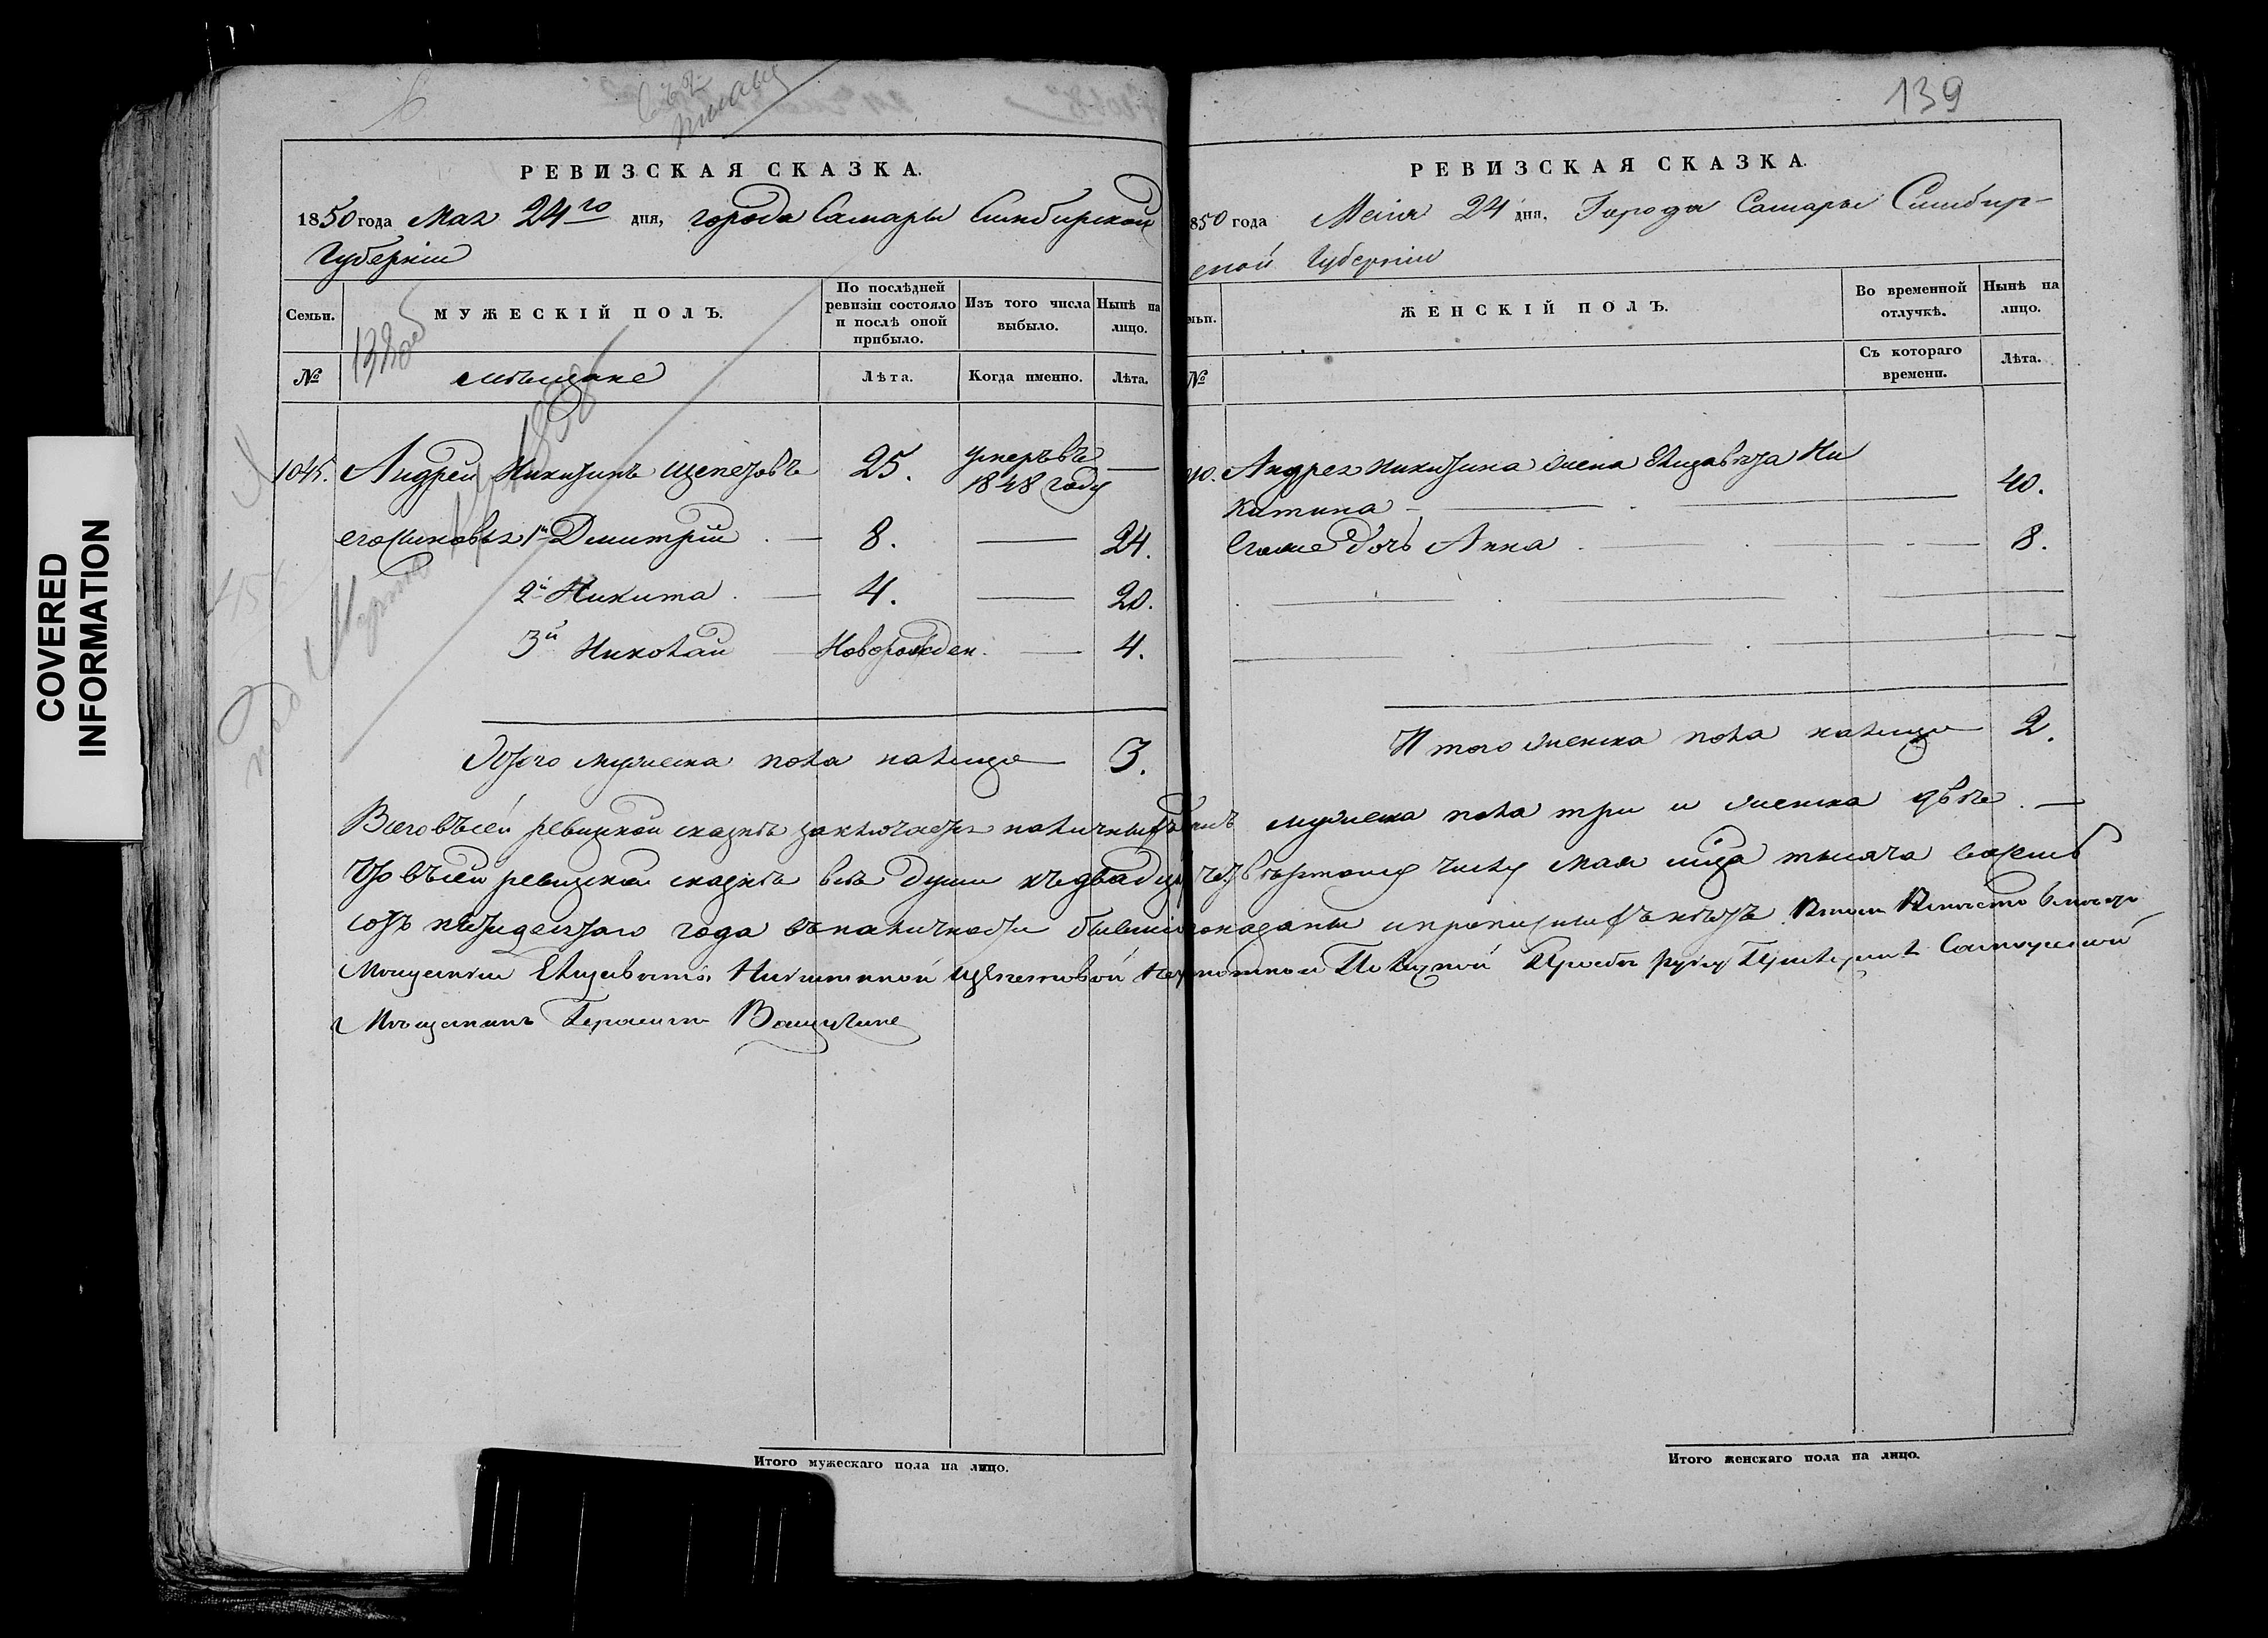 139
РЕВИЗСКАЯ СКАЗКА.
1850 года Мая 24го дня, города Самары Симбирской
Губерніи
Семьи.
МУЖЕСКІЙ ПОЛЪ.
По послѣдней ревизіи состояло и послѣ оной прибыло.
Изъ того числа выбыло.
Нынѣ на лицо.
№
мѣщане
Лѣта.
Когда именно.
Лѣта.
1045. Андрей Никитинъ Щепетовъ 25. умеръ въ 1848 году —
его сыновья 1й Димитрій — 8. — 24.
2й Никита — 4. — 20.
3й Николай — Новорожден. — 4.
Итого мужеска пола налицо 3.
РЕВИЗСКАЯ СКАЗКА.
850 года Маія 24 дня, Города Самары Симбир-
ской Губерніи
мьи.
ЖЕНСКІЙ ПОЛЪ.
Во временной отлучкѣ.
Нынѣ на лицо.
№
Съ котораго времени.
Лѣта.
Андрея Никитина жена Елизавѣта Ни
китина — 40.
Егоже дочь Анна — 8.
Итого женска пола налицо 2.
Всего въ сей ревизской сказкѣ заключается наличныхъ мужеска пола три и женска двѣ. —
Что въ сей ревизской сказкѣ всѣ души къ двадцать четвертому числу мая мца тысяча восемь
сотъ пятидесятаго года въ наличности бывшія показаны и прописныхъ нѣтъ
Елизаветы Никитиной Щепетовой
Мѣщанинъ Герасимъ
Итого мужескаго пола на лицо.
Итого женскаго пола на лицо.
COVERED
INFORMATION